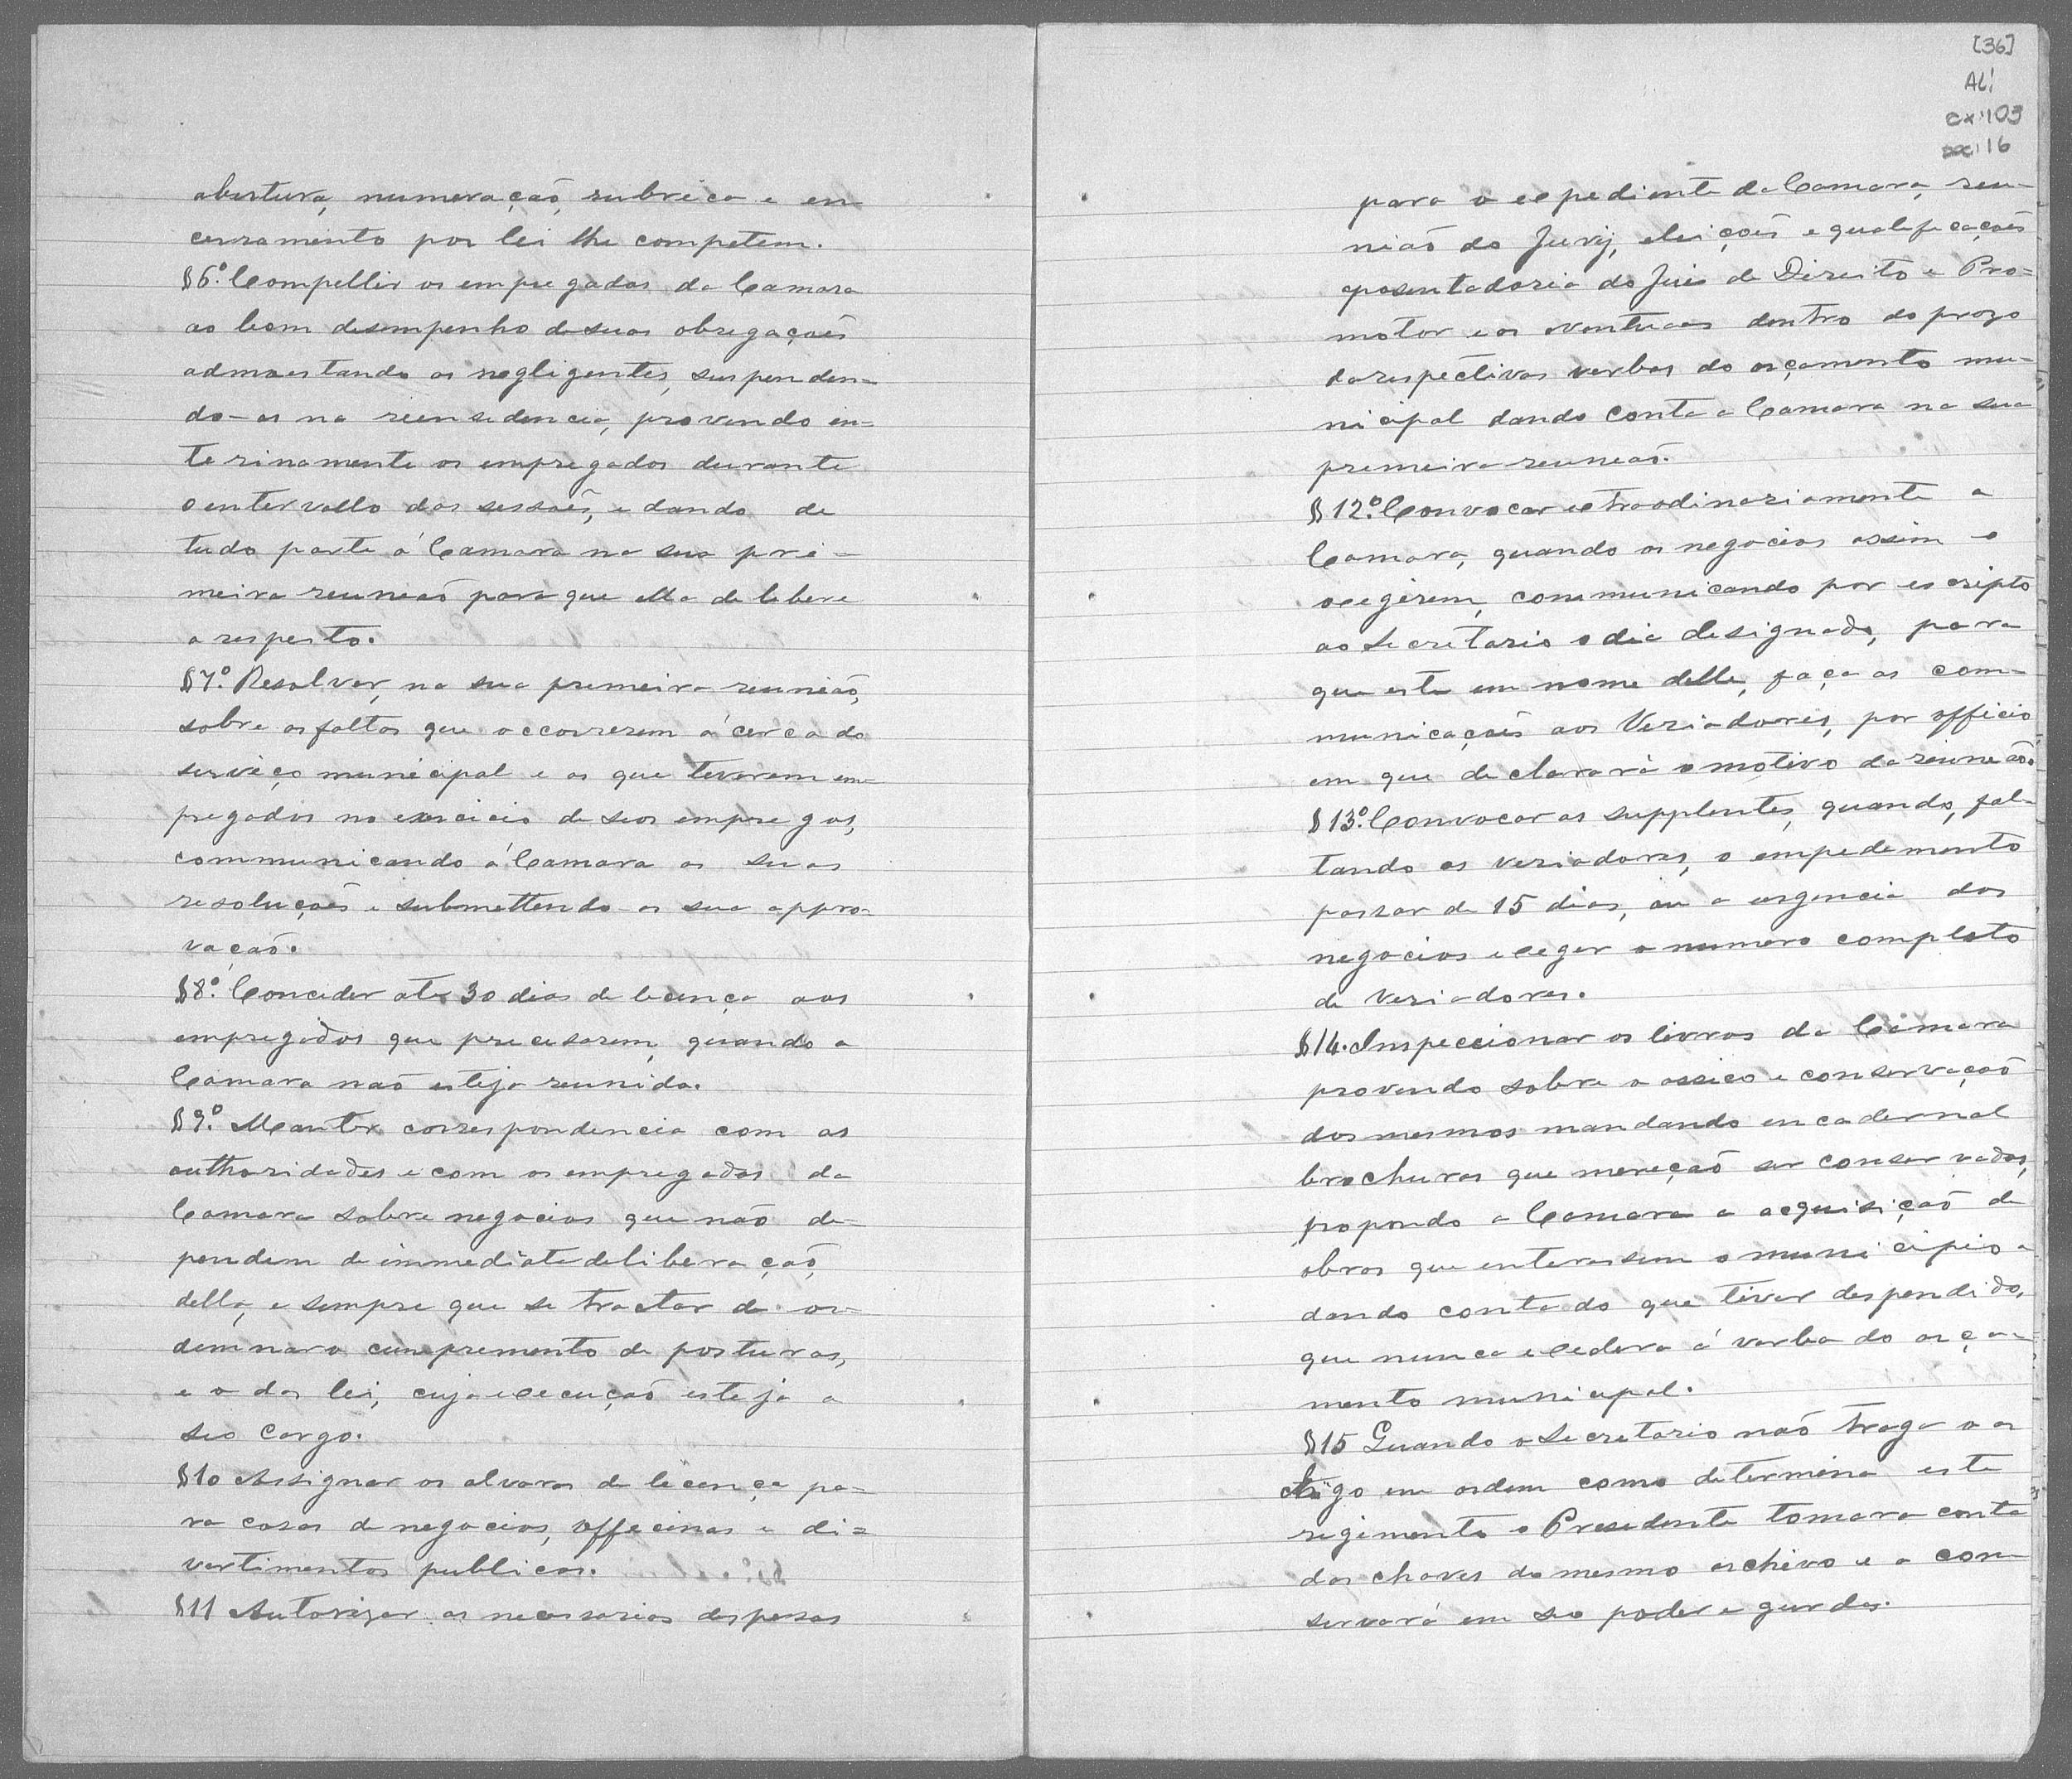 abertura, numeração, rubrica e en-
cerramento por lei lhe competem.
§6º. Compellir os empregados da Camara
ao bom desempenho de suas obregações
admoestando os negligentes, suspenden-
do-os na reensedencia, provendo in-
terinamente os empregados durante
o entervallo das sessões, e dando de
tudo parte á Camara na sua pri-
meira reuneaõ para que ella delebere
a respeito.
§7º. Resolver, na sua premeira reunião,
sobre as faltas que occorrerem ácerca do
serviço municipal e as que teverem em-
pregados no exercicio de seos empregos,
communicando á Camara as suas
resoluções e submettendo-as sua appro-
vaçaõ.
§8º. Conceder até 30 dias de licença aos
empregados que precesarem, quando a
Camara naõ esteja reunida.
§9º. Manter correspondencia com as
authoridades e com os empregados da
Camara sobre negocios que não de-
pendem de immediata deliberaçaõ,
della, e sempre que se tractar de or-
deminar o cumpremento de posturas,
e o das lei, cuja execuçaõ esteja a
seo cargo.
§10 Assignar os alvaras de licença pa-
ra casas de negocios, offecinas e di-
vertimentos publicos.
§11 Autorizar as necessarias despesas
[36]
ALI
cx: 103
16
para o expediente da Camara, reu-
nião do Jury, eleições e qualificações
aposentadoria do Juis de Direito e Pro-
motor e as eventuaes dentro do prazo
das respectivas verbas do orçamento mu-
nicipal dando conta a Camara na sua
premeira reuneaõ.
§12º. Convocar extraodinariamente a
Camara, quando os negocios assim o
exegirem, communicando por escripto
ao Secretario o dia designado, para
que este em nome delle, faça as com-
municações aos Veriadores, por officio
em que declarará o motivo da reuneaõ.
§13º. Convocar os supplentes, quando, fal-
tando os veriadores, o empedemento
passar de 15 dias, ou a urgencia dos
negocios exeger o numero completo
de Veriadores.
§14. Inspeccionar os livros da Camara
provendo sobre o asseio e conservaçaõ
dos mesmos mandando encadernal
brochuras que mereçaõ ser conservadas,
propondo a Camara a acquisiçaõ de
obras que enteressem o municipio e
dando conta do que tiver despendido,
que nunca excedera á verba do orça-
mento municipal.
§15 Quando o Secretario naõ traga o ar
chigo em ordem como determina este
regimento o Presedente tomara conta
das chaves do mesmo archivo e a con-
servará em seo poder e gurda.